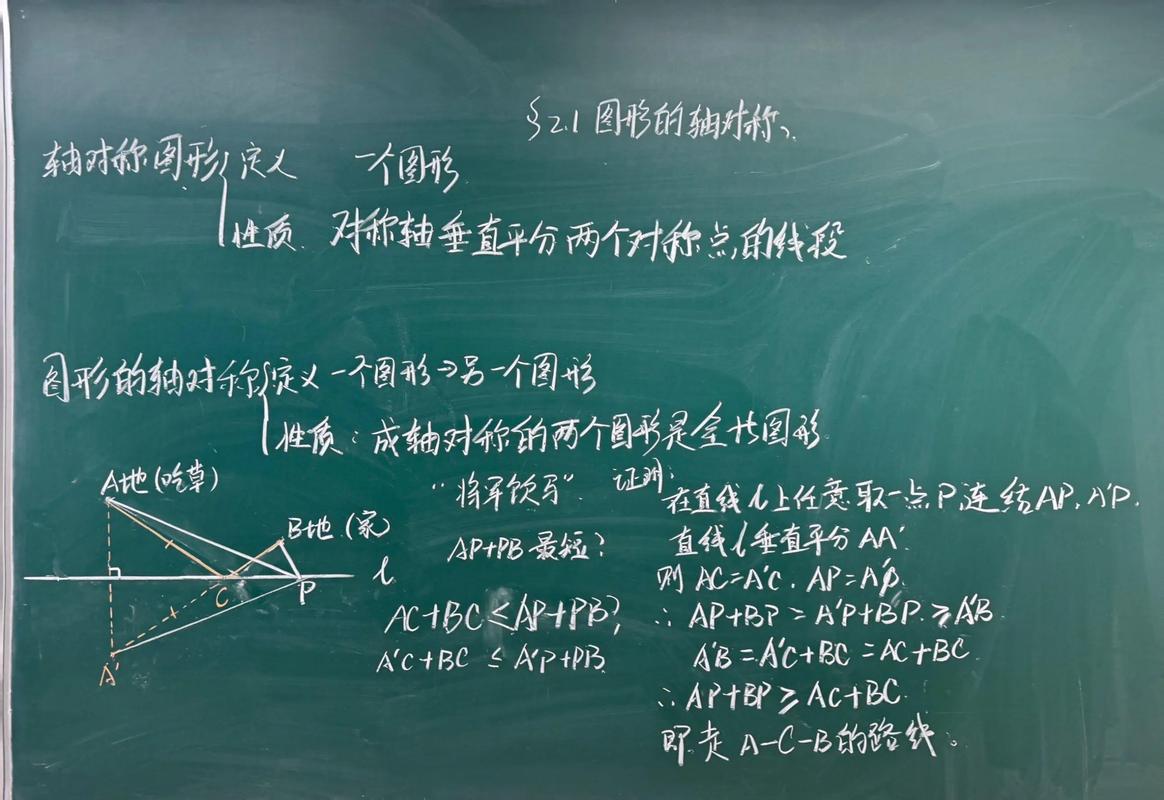 §2.1 图形的轴对称
轴对称图形{定义 一个图形
性质 对称轴垂直平分两个对称点的线段
图形的轴对称{定义 一个图形→另一个图形
性质：成轴对称的两个图形是全北图形
A地(吃草)
B地(家)
l
C
P
A'
“将军饮马”
AP+PB 最短?
AC+BC≤AP+PB?
A'C+BC≤A'P+PB
证明:
在直线l上任意取一点P,连结AP,A'P.
直线l垂直平分AA'
则 AC=A'C.AP=A'P.
∴AP+BP=A'P+BP≥A'B
A'B=A'C+BC=AC+BC
∴AP+BP≥AC+BC
即走A-C-B的路线。